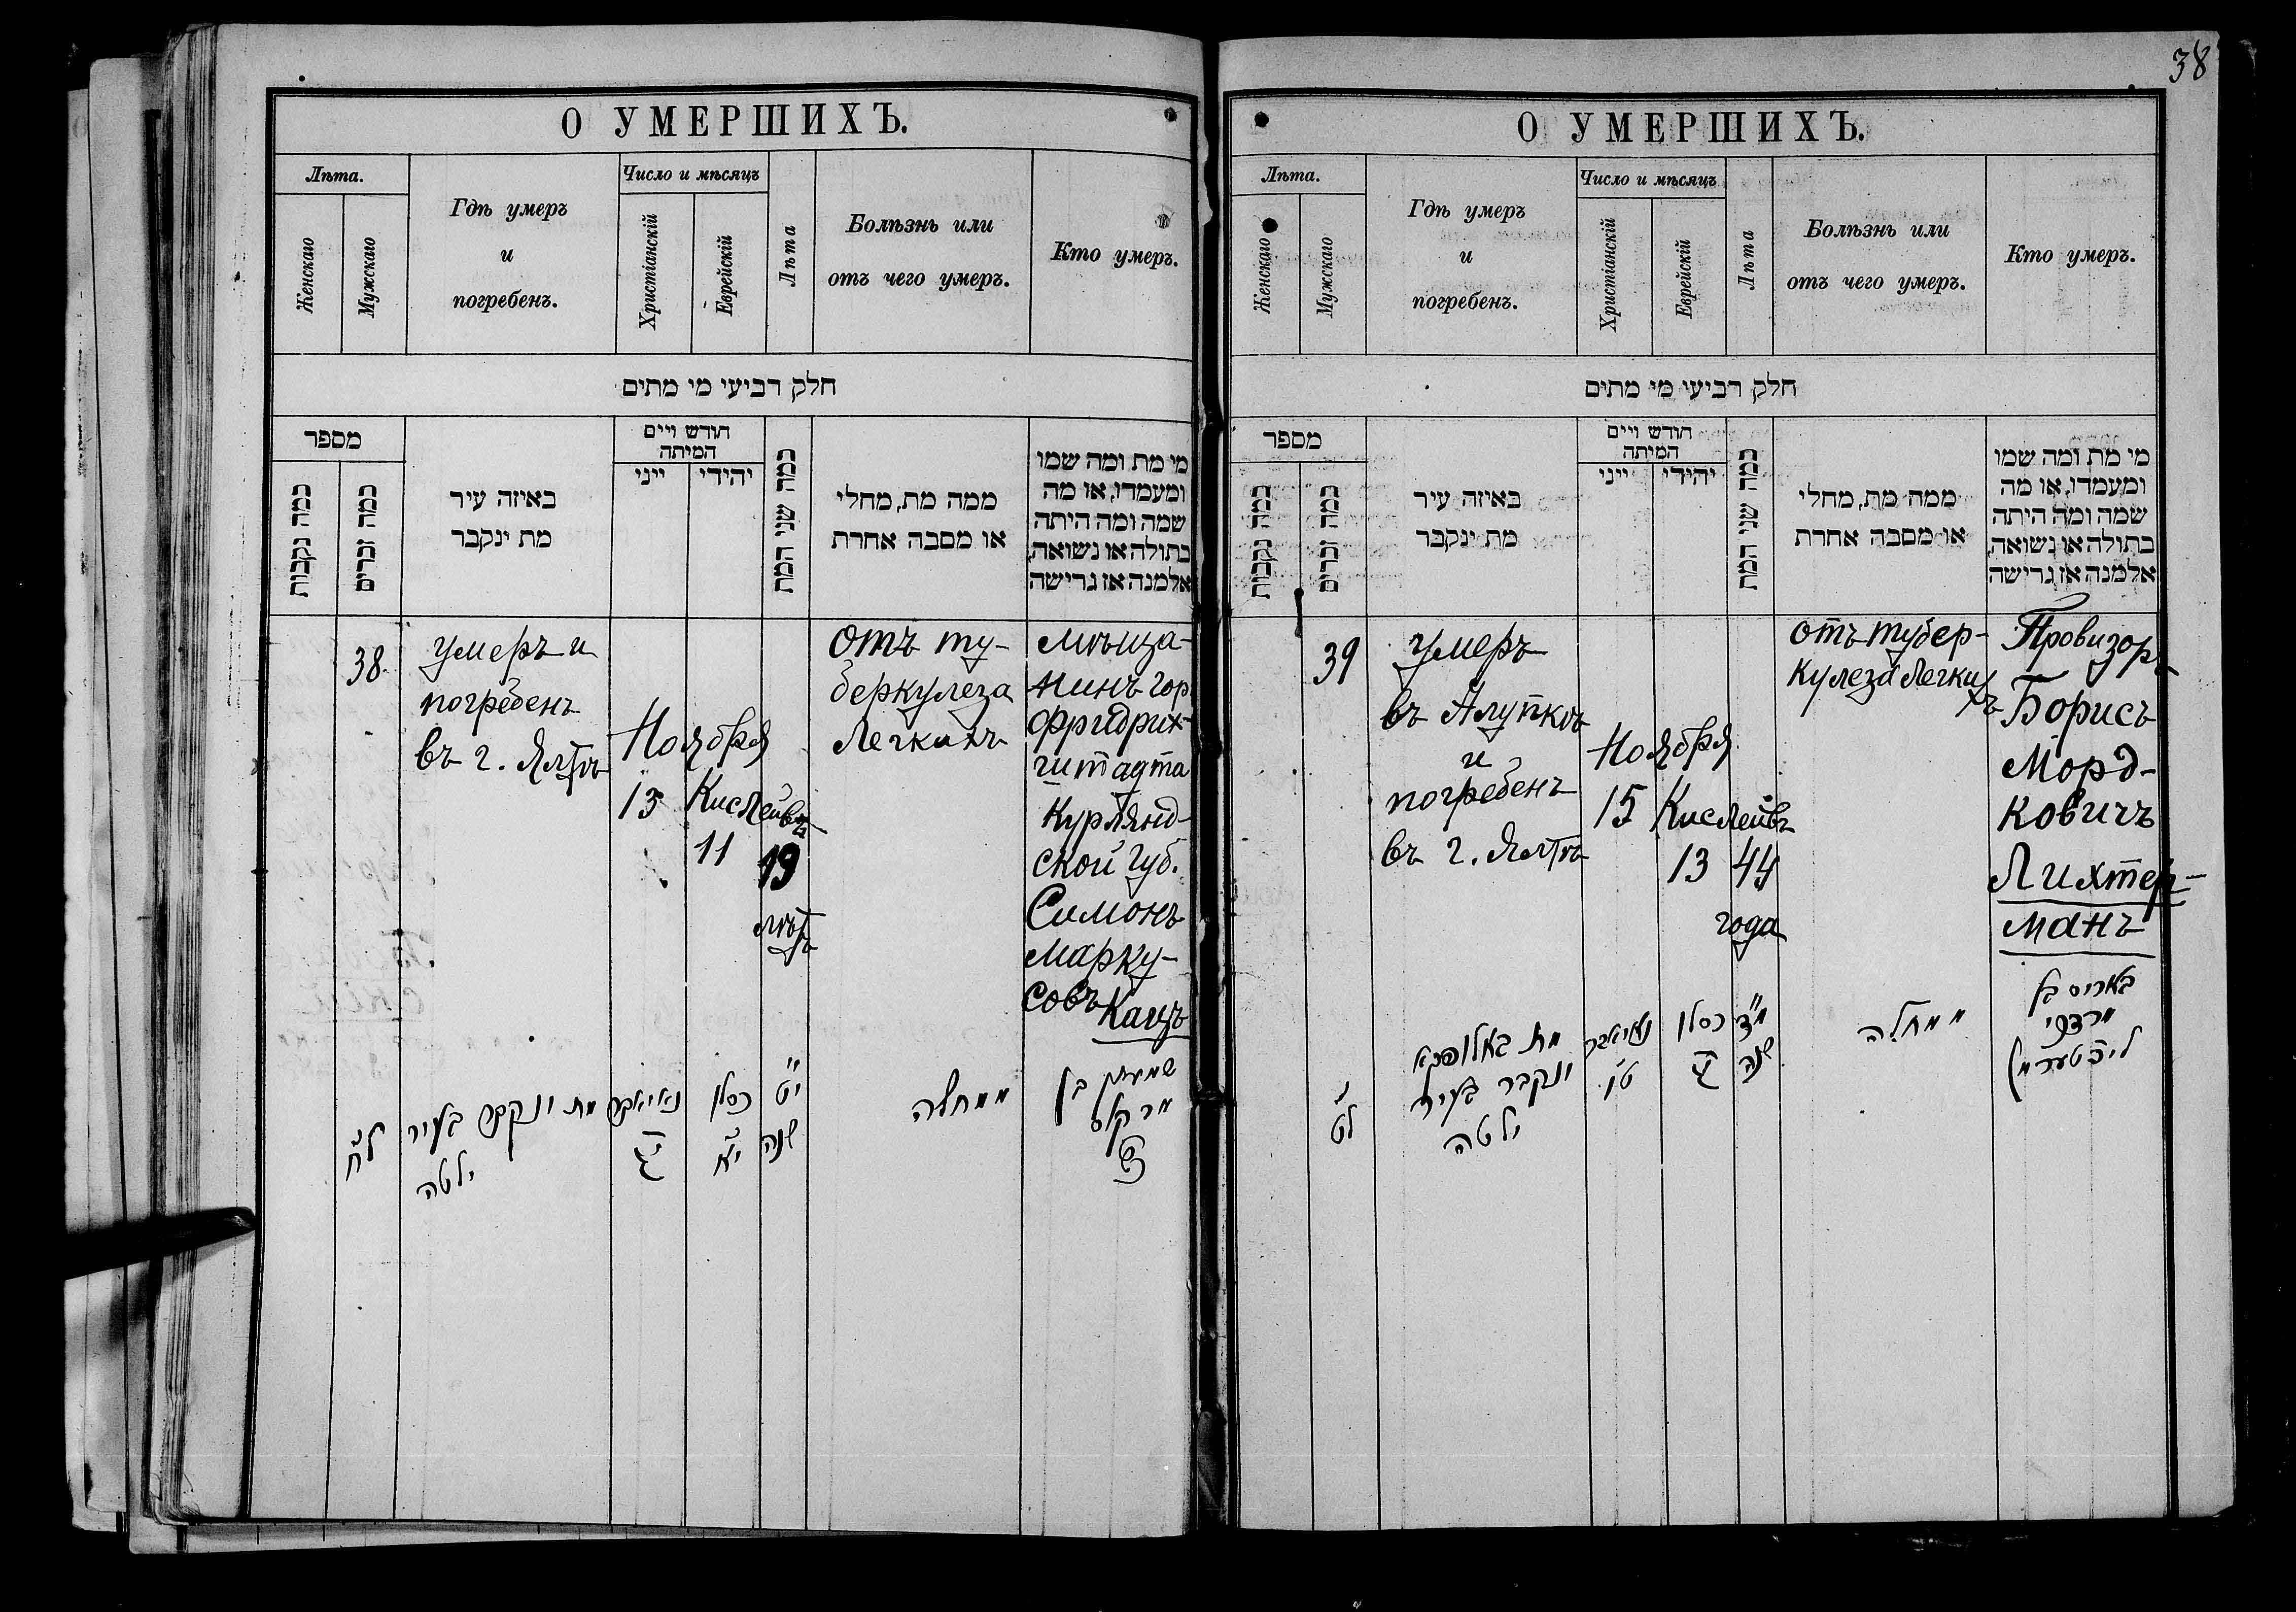 38
О УМЕРШИХЪ.
Лѣта.
Женскаго
Мужскаго
Гдѣ умеръ
и
погребенъ.
Число и мѣсяцъ
Христіанскій
Еврейскій
Лѣта
Болѣзнь или
отъ чего умеръ.
Кто умеръ.
חלק רביעי מי מתים
מספר
כמה נקבות
כמה זכרים
באיזה עיר
מת ינקבר
חודש ויום
המיתה
ייני
יהידי
כמה שני המת
ממה מת, מחלי
או מסבה אחרת
מי מת ומה שמו
ומעמדו, או מה
שמה ומה היתה
בתולה או נשואה,
אלמנה או גרישה
38
умеръ и
погребенъ
въ г. Ялтѣ
Ноября
13
Кислейвъ
11
19
лѣтъ
отъ ту-
беркулеза
Легкихъ
Мѣща-
нинъ гор
Фридрих-
штадта
Курлянд-
ской губ.
Симонъ
Марку-
совъ Кацъ
ל״ח
מת ונקבר בעיר
ילטה
נאיאבר
י״ג
כסלו
י״א
י״ט
שנה
ממחלה
שמעון בן
מרקוס
כץ
О УМЕРШИХЪ.
Лѣта.
Женскаго
Мужскаго
Гдѣ умеръ
и
погребенъ.
Число и мѣсяцъ
Христіанскій
Еврейскій
Лѣта
Болѣзнь или
отъ чего умеръ.
Кто умеръ.
חלק רביעי מי מתים
מספר
כמה נקבות
כמה זכרים
באיזה עיר
מת ינקבר
חודש ויום
המיתה
ייני
יהידי
כמה שני המת
ממה מת, מחלי
או מסבה אחרת
מי מת ומה שמו
ומעמדו, או מה
שמה ומה היתה
בתולה או נשואה,
אלמנה או גרישה
39
умеръ
въ Алупкѣ
и
погребенъ
въ г. Ялтѣ
Ноября
15
Кислейвъ
13
44
года
отъ тубер-
кулеза Легкихъ
Провизоръ
Борисъ
Морд-
ковичъ
Лихтер-
манъ
ל״ט
מת באלופקא
ונקבר בעיר
ילטה
נאיאבר
ט״ו
כסלו
י״ג
מ״ד
שנה
ממחלה
באריס בן
מרדכי
ליכטערמן